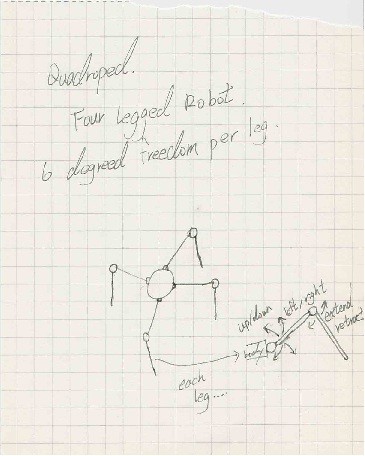 Quadroped.
Four Legged Robot.
6 dogreed freedom per leg.
up/down
left/right
extend
retract
body
each
leg....